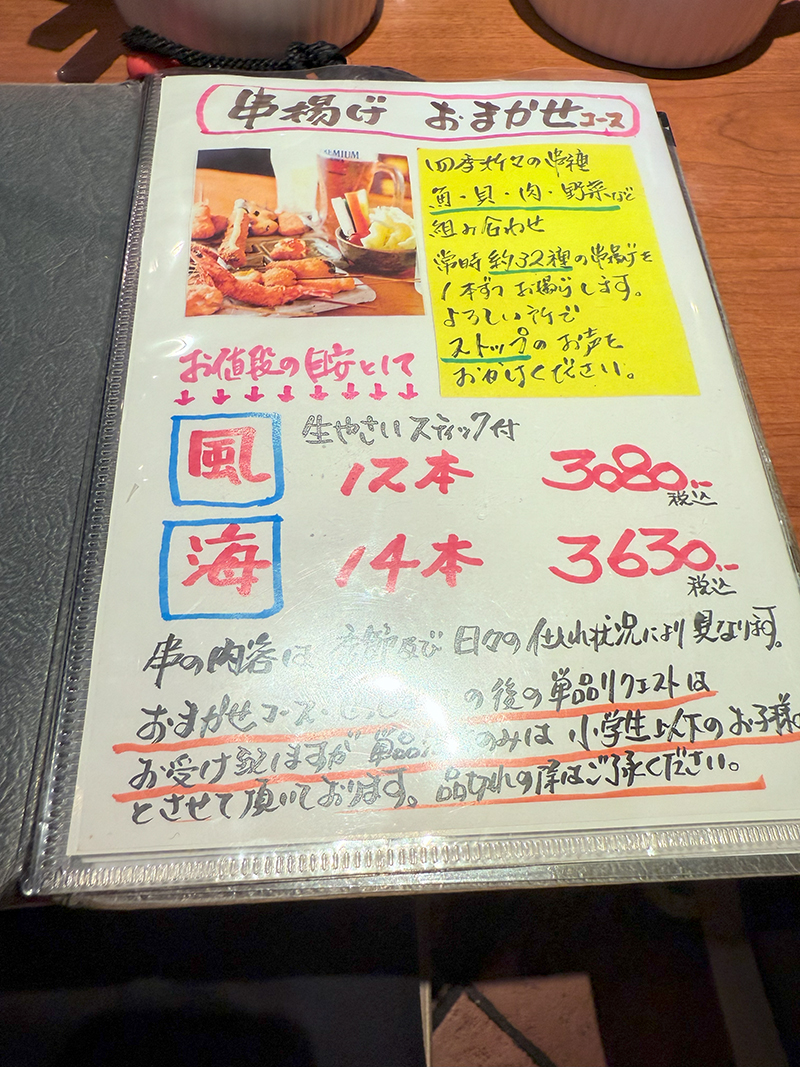 串揚げ おまかせコース
MIUM
四季折々の串種
魚・貝・肉・野菜など
組み合わせ
常時約32種の串揚げを
1本ずつお揚げします。
よろしい所で
ストップのお声を
おかけください。
お値段の目安として
風 生やさいスティック付
12本 3080.- 税込
海 14本 3630.- 税込
串の内容は 季節及び 日々の仕入れ状況により異なります。
おまかせコース・ の後の単品リクエストは
お受け致しますが単品 のみは 小学生以下のお子様の
とさせて頂いております。品切れの際はご了承ください。